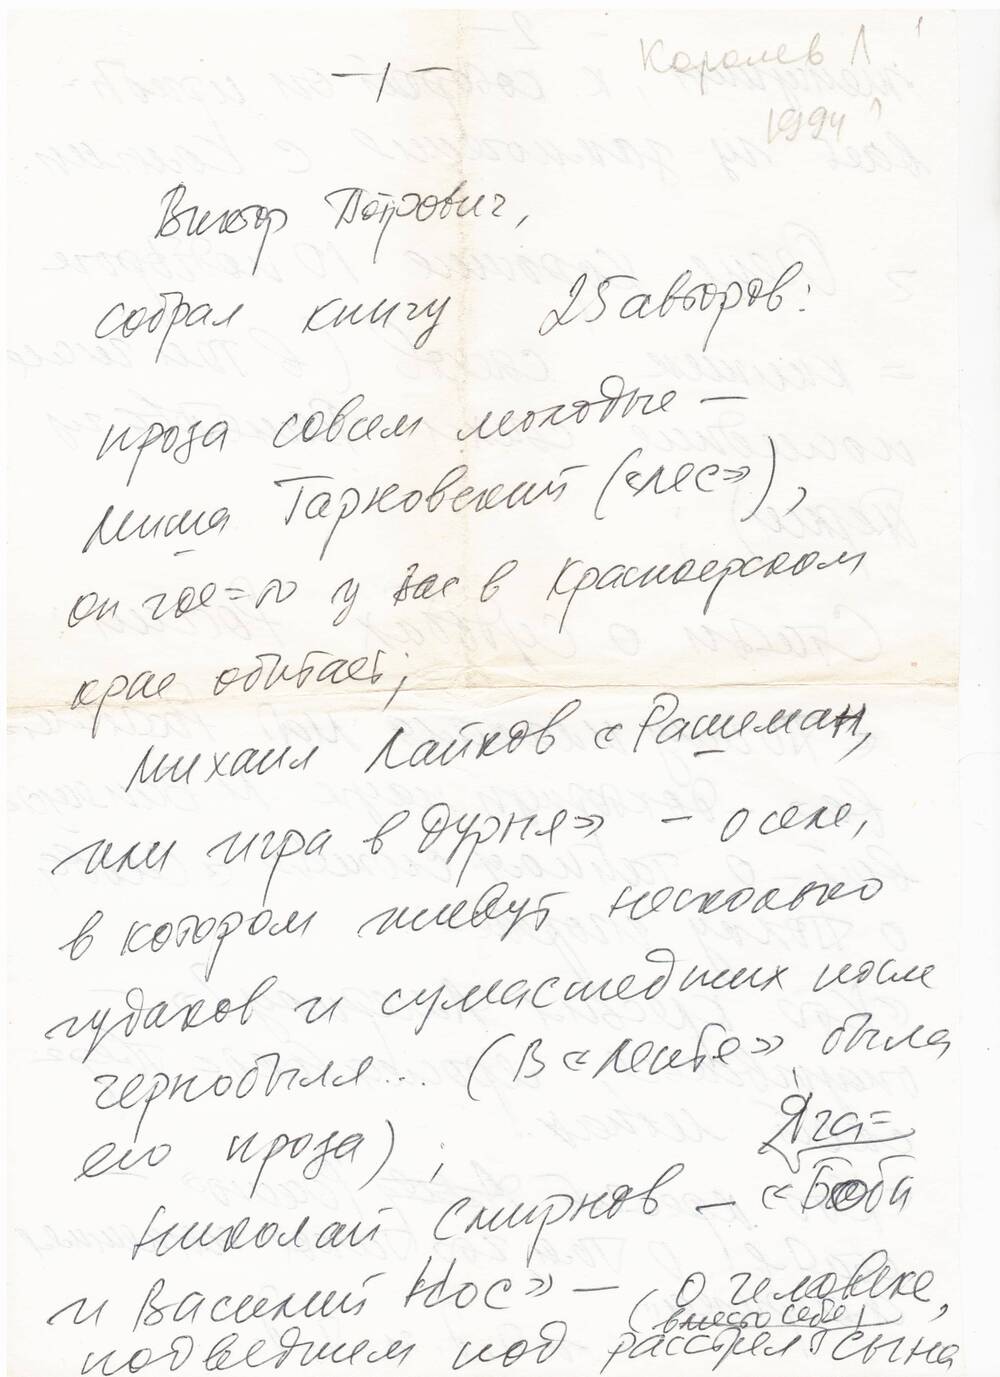 Королев Л
1994
-1-
Виктор Петрович,
собрал книгу 25 авторов:
проза совсем молодые —
Миша Тарковский («Лес»),
он где=то у вас в Красноярском
крае обитает;
Михаил Лайков «Рашеман,
или игра в дурня» — о селе,
в котором живут несколько
чудаков и сумасшедших после
чернобыля... (В « » была
его проза);
Яга=
Николай Смирнов — «Баба
и Василий Нос» — о человеке,
(вместо себя)
подведшем под расстрел сына